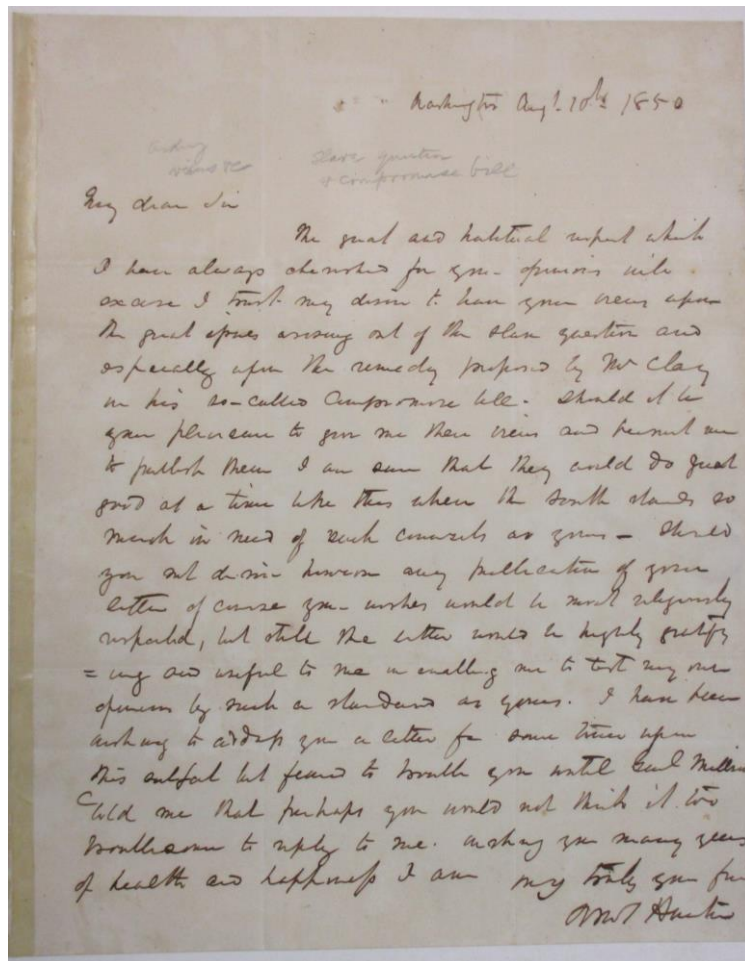 Washington Augt. 10th 1850
views &c
slave question
& compromise bill
My dear Sir
The great and habitual respect which
I have always cherished for your opinions will
excuse I trust my desire to have your views upon
the great issues arising out of the slave question and
especially upon the remedy proposed by Mr Clay
in his so-called Compromise bill. Should it be
your pleasure to give me these views and permit me
to publish them I am sure that they would do great
good at a time like this when the South stands so
much in need of such counsels as yours - Should
you not desire however any publication of your
letter of course your wishes would be most religiously
respected, but still the letter would be highly gratify
=ing and useful to me in enabling me to test my own
opinions by such a standard as yours. I have been
wishing to address you a letter for some time upon
this subject but feared to trouble you until
told me that perhaps you would not think it too
troublesome to reply to me. Wishing you many years
of health and happiness I am very truly your
RMT Hunter